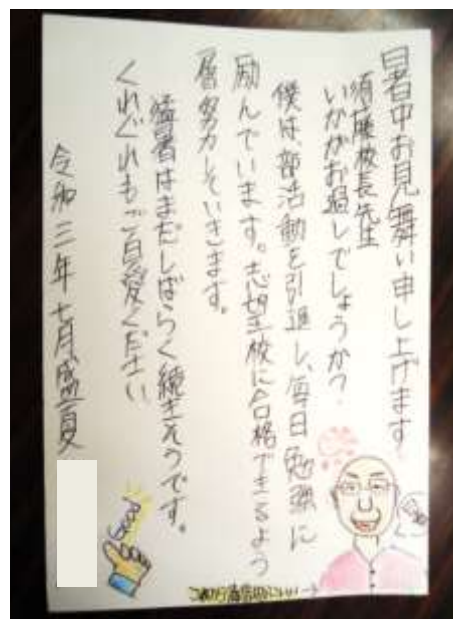 暑中お見舞い申し上げます
須藤校長先生
いかがお過しでしょうか？
僕は、部活動を引退し、毎日勉強に
励んでいます。志望校に合格できるよう
層努力していきます。
猛暑はまだしばらく続きそうです。
くれぐれもご自愛ください
令和三年七月盛夏
Good